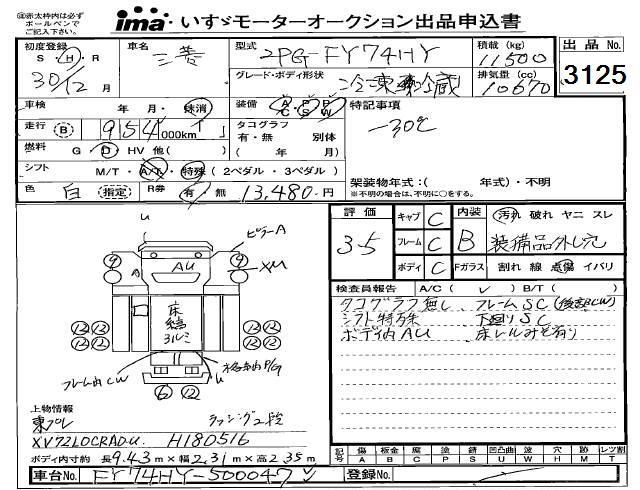 ㊟赤太枠内は必ず
ボールペンで
ご記入下さい。
ima いすゞモーターオークション出品申込書
初度登録
S・H・R
30/12月
車名
三菱
型式
2PG-FY74HY
グレード・ボディ形状
冷凍車冷蔵
積載(kg)
11500
排気量(cc)
10670
出品No.
3125
車検 年 月・抹消
装備 AC PS PW
特記事項
-30℃
走行 B 954,000km
タコグラフ
有・無 別体
( 年 月)
燃料 G・D・HV 他( )
シフト M/T・A/T・特殊(2ペダル・3ペダル)
架装物年式:( 年式)・不明
※不明の場合は、不明に○をする。
色 白 (指定) R券 有 無 13,480-円
u
ピラーA
9
9
XU
A
AU
床
縞
ヨルミ
12 12
12 12
12 12
12 12
フレーム内CW
u
6 12
評価
3.5
キャブ C
フレーム C
ボディ C
内装 B
汚れ 破れ ヤニ スレ
装備品外し穴
Fガラス 割れ 線 点傷 イバリ
検査員報告 A/C( ✓ ) B/T( )
タコグラフ無し フレームSC(後部BCW)
シフト特殊 下廻りSC
ボディ内AU 床レールみぞ有り
上物情報
東プレ ラッシング2段
XV72LOCRAD-U. H180516
ボディ内寸約 長 9.43 m×幅 2.31 m×高 2.35 m
記号 傷 A 板金 B 腐 C 押 P 塗 S 錆 S 凹凸曲 U 波 W 穴 H 跡 M レツ割 T
車台No. FY74HY-500047
登録No.